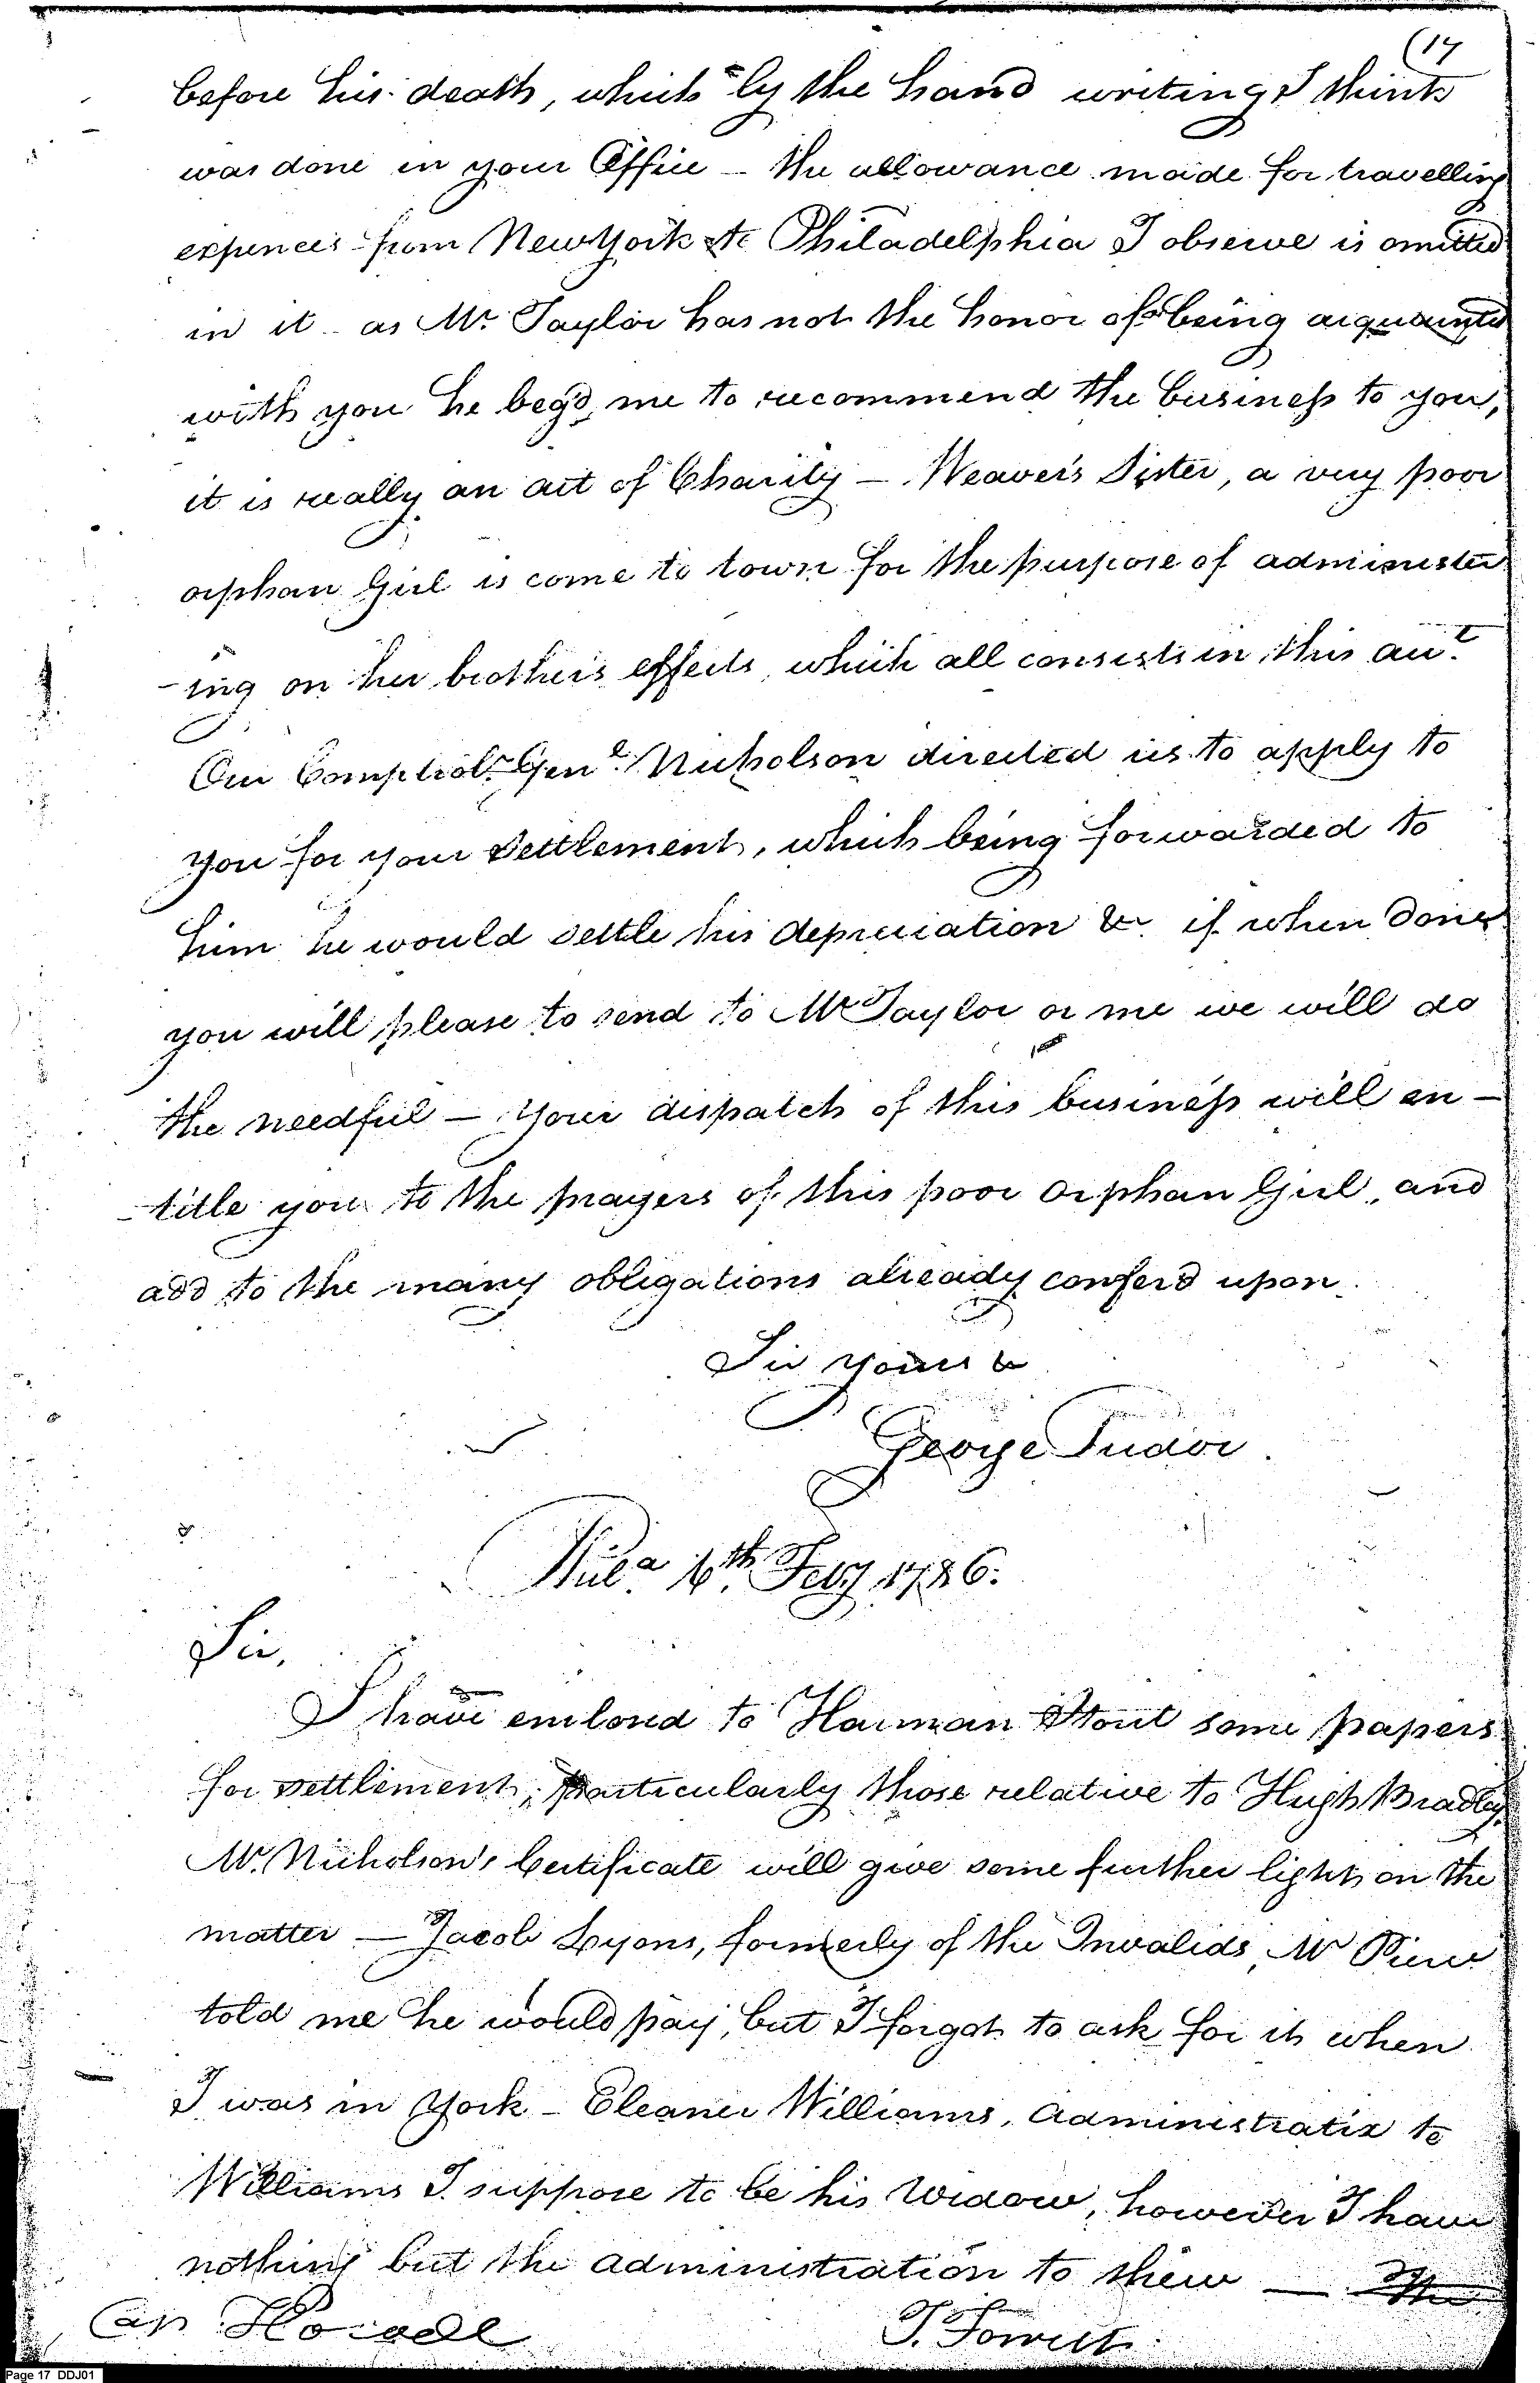 (17
before his death, which by the hand writing I think
was done in your Office – the allowance made for travelling
expences from New York to Philadelphia I observe is omitted
in it – as Mr. Taylor has not the honor of being acquainted
with you he beg'd me to recommend the business to you,
it is really an act of Charity – Weaver's Sister, a very poor
orphan Girl is come to town for the purpose of administer
-ing on her brother's effects, which all consists in this acct.
Our Comptrolr. Genl. Nicholson directed us to apply to
you for your settlement, which being forwarded to
him he would settle his depreciation &c if when done
you will please to send to Mr Taylor or me we will do
the needful – Your dispatch of this business will en-
-title you to the prayers of this poor Orphan Girl, and
add to the many obligations already confer'd upon
Sir yours &
George Tudor.
Phila. 6th. Feby 1786.
Sir,
I have enclosed to Harman Stout some papers
for settlement, particularly those relative to Hugh Bradley,
Mr. Nicholson's Certificate will give some further light on the
matter – Jacob Lyons, formerly of the Invalids, Mr Pierce
told me he would pay, but I forgot to ask for it when
I was in York – Eleaner Williams, administratix to
Williams I suppose to be his Widow, however I have
nothing but the administration to shew –
Cap Howell
Page 17 DDJ01